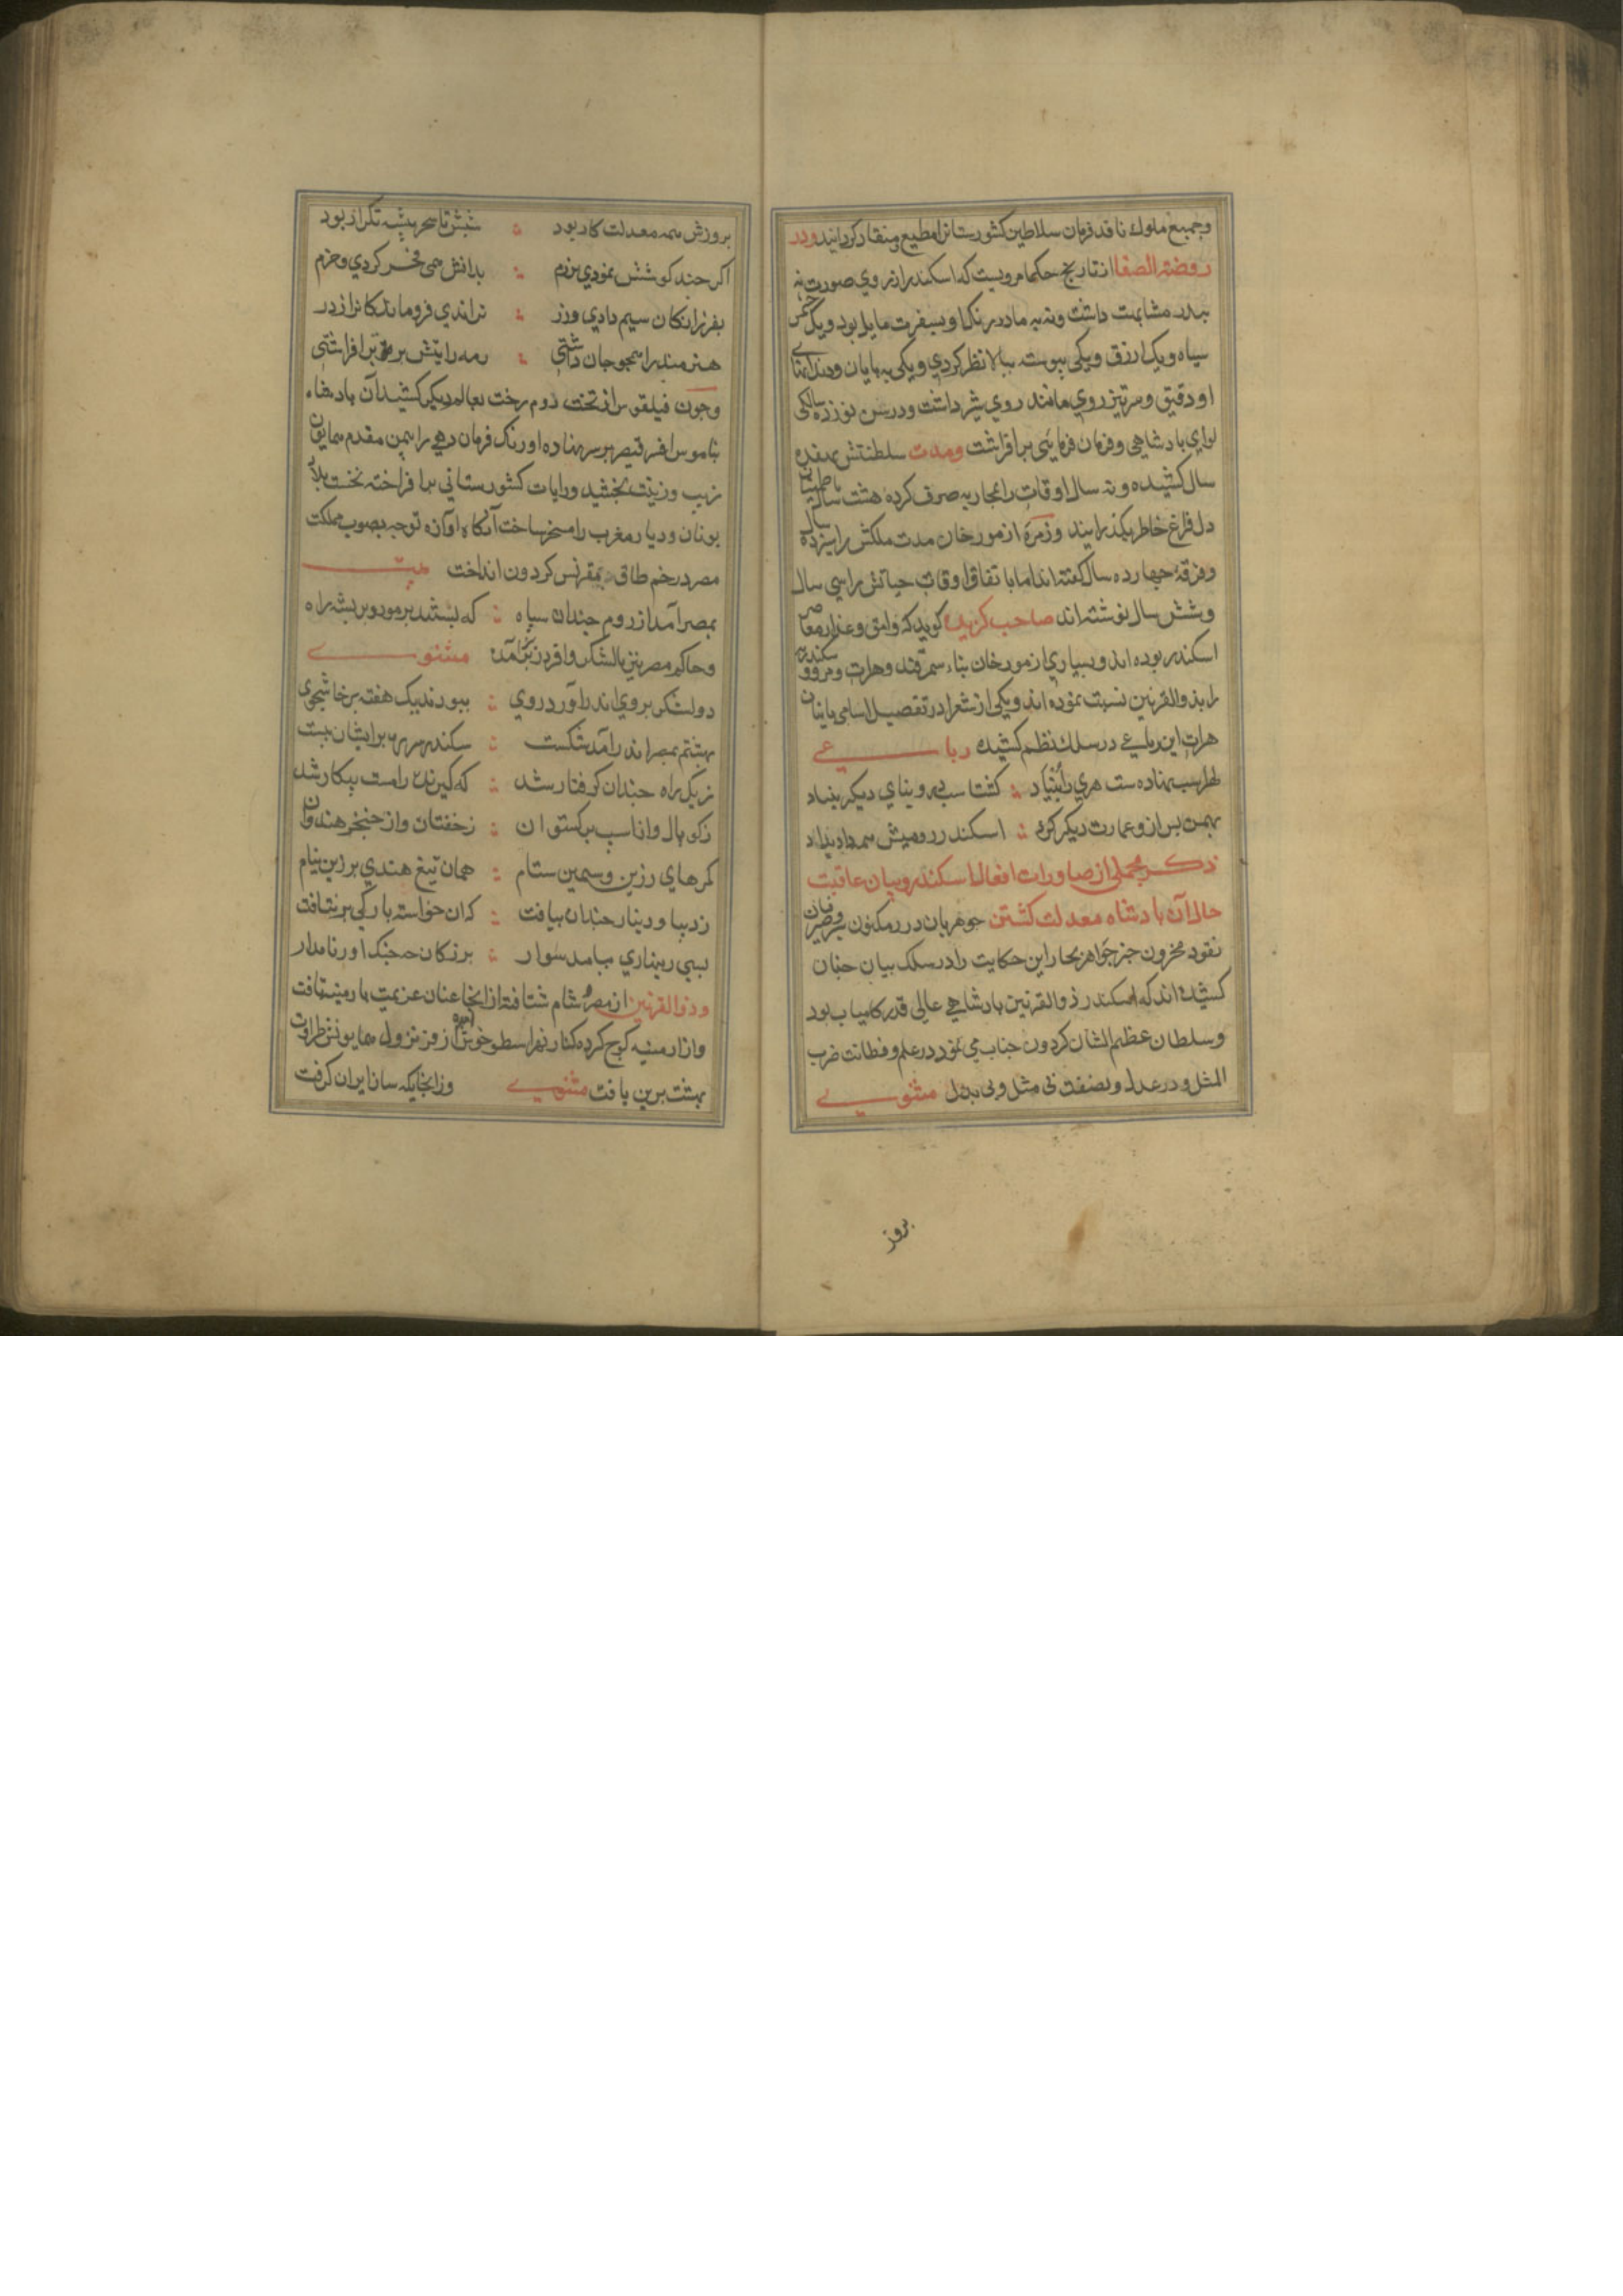 وجمیع ملوک نافذ فرمان سلاطین کشورستانرا مطیع ومنقاد کردانید ودر
روضة الصفا از تاریخ حکما مرویست که اسکندر از روی صورت نه
بپدر مشابهت داشت ونه به مادر رنک او بسفرت مایل بود ویک چشمش
سیاه ویک ازرق ویکی پیوسته ببالا نظر کردی ویکی به پایان ودندانهای
او دقیق وسرتیز روی مانند روی شیر داشت ودر سن نوزده سالکی
لوای پادشاهی وفرمان فرمایی برافراشت ومدت سلطنتش بهفده
سال کشیده ونه سال اوقات را بمحاربه صرف کرده هشت سال باطمینان
دل فراغ خاطر بکذرانید وزمره از مورخان مدت ملکش را سیزده سال
وفرقه چهارده سال کفته اند اما باتفاق اوقات حیاتش را سی سال
وشش سال نوشته اند صاحب کزیده کوید که وامق وعذرا معاصر
اسکندر بوده اند وبسیاری از مورخان بناء سمرقند وهرات ومرو واسکندریه
را بذوالقرنین نسبت نموده اند ویکی از شعرا در تفصیل اسامی بانیان
هرات این رباعی در سلک نظم کشیده رباعی
لهراسب نهاده ست هری را بنیاد : کشتاسب برو بنای دیکر بنهاد
بهمن پس ازو عمارت دیکر کرد : اسکندر رومیش همه داد بداد
ذکر مجملی از صاورات افعال اسکندر وبیان عاقبت
حال آن پادشاه معدلت کشتن جوهریان درر مکنون وصرافان
نقود مخزون جز جواهر بحار این حکایت را در سلک بیان چنان
کشیده اند که اسکندر ذوالقرنین پادشاهی عالی قدر کامیاب بود
وسلطان عظیم الشان کردون جناب می نمود در علم وفطانت ضرب
المثل ودر عدل ونصفت بی مثل وبی بدل مثنوی
بروز
بروزش همه معدلت کار بود : شبش تا سحر پیشه تکرار بود
اکر چند کوشش نمودی برزم : بدانش همی فخر کردی وحزم
بفرزانکان سیم دادی وزر : نراندی فروماندکانرا ز در
هنرمند را همچو جان داشتی : رمه رایتش بر مه برافراشتی
وچون فیلقوس از تخت روم رخت بعالم دیکر کشید آن پادشاه
بناموس افسر قیصر بر سر نهاده اورنک فرمان دهی را بیمن مقدم همایون
زیب وزینت بخشید ورایات کشورستانی برافراخته نخست بلاد
یونان ودیار مغرب را مسخر ساخت آنکاه اوآزه توجه بصوب مملکت
مصر در خم طاق مقرنس کردون انداخت بیت
بمصر آمد از روم چندان سپاه : که بستند بر مور وبر پشه راه
وحاکم مصر نیز بالشکر وافر در برآمد مثنوی
دولشکر بروی اندر آورد روی : ببودند یک هفته پرخاشجوی
بهشتم بمصر اندر آمد شکست : سکندر سر راه بر ایشان ببست
ز یک راه چندان کرفتار شد : که کیرنده را دست بیکار شد
ز کوپال واز اسب برکستوان : ز خفتان واز خنجر هندوان
کمرهای زرین وسیمین ستام : همان تیغ هندی بزرین نیام
ز دیبا ودینار چندان بیافت : که آن خواسته بارکی برنتافت
بسی زینهاری بیامد سوار : بزرکان جنک اور نامدار
وذوالقرنین از مصر وشام شتافته از انجا عنان عزیمت بارمنیه تافت
واز ارمنیه کوچ کرده کنار نهر اسطو خوش آمده از فر نزول همایونش طراوت
بهشت برین یافت مثنوی وزانجایکه ساز ایران کرفت